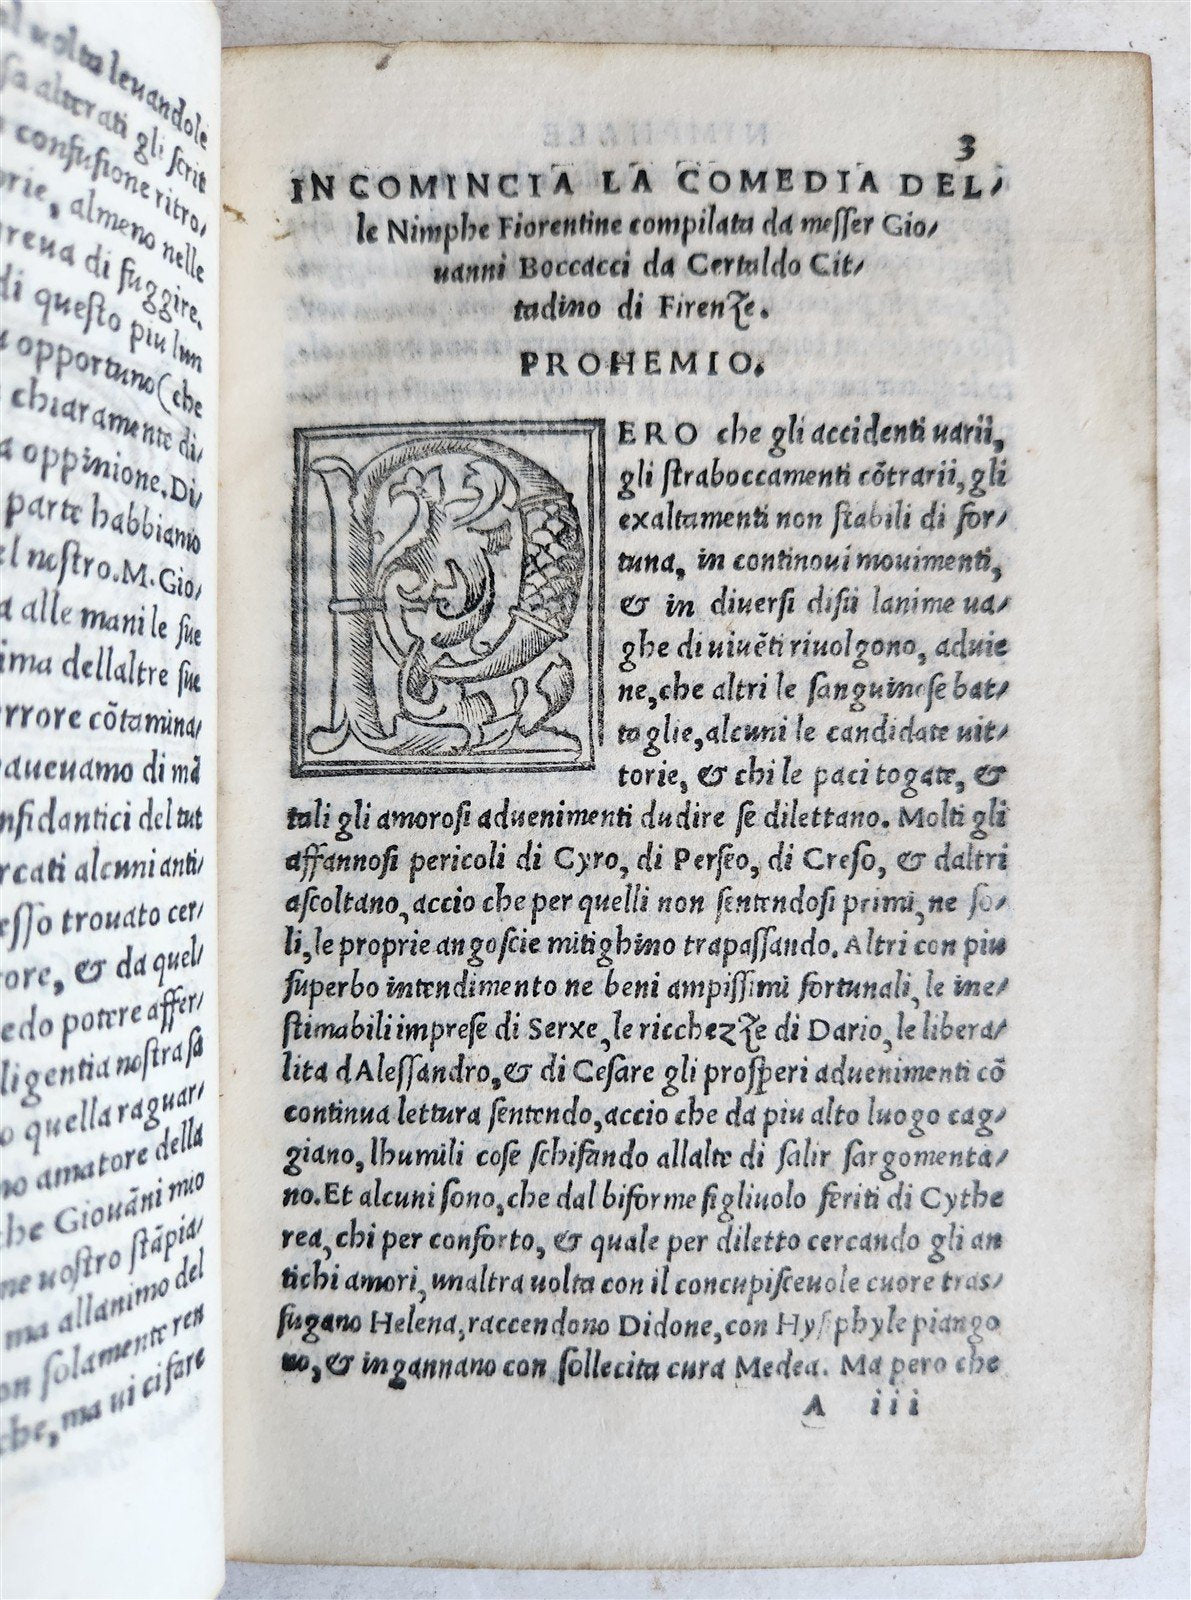 uolta leuandole
alterati gli scrit
confusione ritro/
orie, almeno nelle
di fuggire.
di questo piu lun
opportuno (che
chiaramente di/
oppinione. Di/
parte habbiamo
el nostro. M. Gio/
a alle mani le sue
ima dellaltre sue
errore cõtamina/
di mã
del tut
rcati alcuni anti/
esso trouato cer/
ore, & da quel/
edo potere affer/
ligentia nostra sa
o quella raguar/
no amatore della
he Giouãni mio
me uostro stãpia/
ma allanimo del
on solamente ren
che, ma ui ci fare
3
INCOMINCIA LA COMEDIA DEL/
le Nimphe Fiorentine compilata da messer Gio/
uanni Boccacci da Certaldo Cit/
tadino di Firenze.
PROHEMIO.
PERO che gli accidenti uarii,
gli straboccamenti cõtrarii, gli
exaltamenti non stabili di for/
tuna, in continoui mouimenti,
& in diuersi disii lanime ua/
ghe di uiuẽti riuolgono, aduie
ne, che altri le sanguinose bat/
taglie, alcuni le candidate uit/
torie, & chi le paci togate, &
tali gli amorosi aduenimenti dudire se dilettano. Molti gli
affannosi pericoli di Cyro, di Perseo, di Creso, & daltri
ascoltano, accio che per quelli non sentendosi primi, ne so/
li, le proprie angoscie mitighino trapassando. Altri con piu
superbo intendimento ne beni ampissimi fortunali, le ine/
stimabili imprese di Serxe, le ricchezze di Dario, le libera/
lita dAlessandro, & di Cesare gli prosperi aduenimenti cõ
continua lettura sentendo, accio che da piu alto luogo cag/
giano, lhumili cose schifando allalte di salir sargomenta/
no. Et alcuni sono, che dal biforme figliuolo feriti di Cythe
rea, chi per conforto, & quale per diletto cercando gli an
tichi amori, unaltra uolta con il concupisceuole cuore tras/
fugano Helena, raccendono Didone, con Hysiphyle piango
no, & ingannano con sollecita cura Medea. Ma pero che
A iii